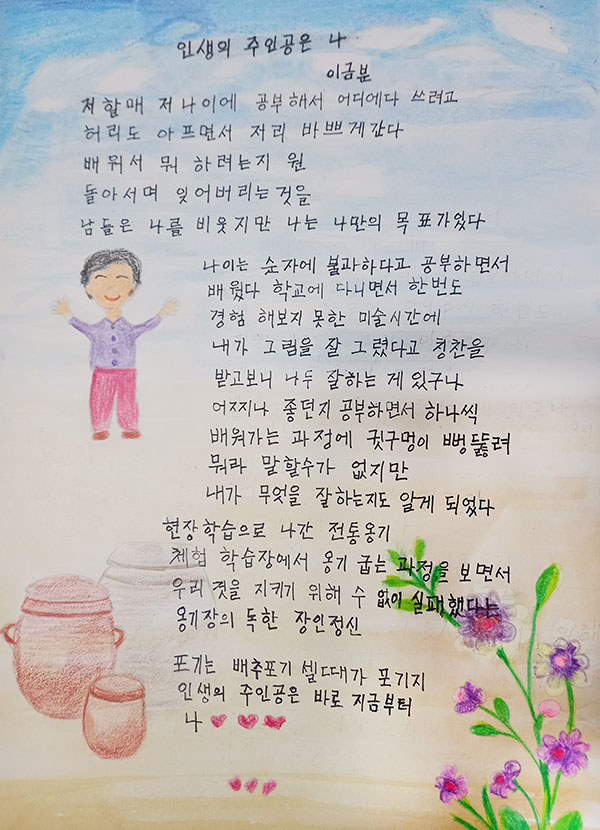 인생의 주인공은 나
이금분
저할매 저나이에 공부해서 어디에다 쓰려고
허리도 아프면서 저리 바쁘게간다
배워서 뭐 하려는지 원
돌아서며 잊어버리는것을
남들은 나를 비웃지만 나는 나만의 목표가있다
나이는 숫자에 불과하다고 공부하면서
배웠다 학교에 다니면서 한번도
경험 해보지 못한 미술시간에
내가 그림을 잘 그렸다고 칭찬을
받고보니 나두 잘하는 게 있구나
어찌나 좋던지 공부하면서 하나씩
배워가는 과정에 귓구멍이 뻥뚫려
뭐라 말할수가 없지만
내가 무엇을 잘하는지도 알게 되었다
현장학습으로 나간 전통옹기
체험 학습장에서 옹기 굽는 과정을 보면서
우리 것을 지키기 위해 수 없이 실패했다는
옹기장의 독한 장인정신
포기는 배추포기 셀때가 포기지
인생의 주인공은 바로 지금부터
나